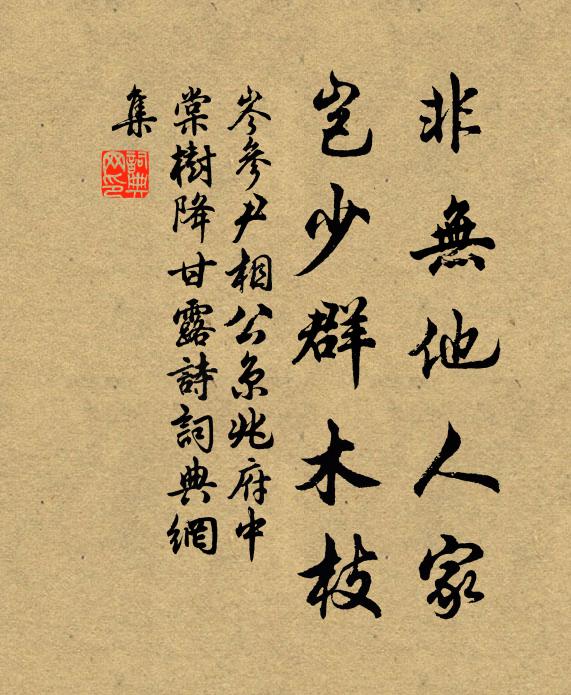 非無他人家
豈少群木枝
岑參尹相公京兆府中
棠樹降甘露詩詞典網
集
詞典網印